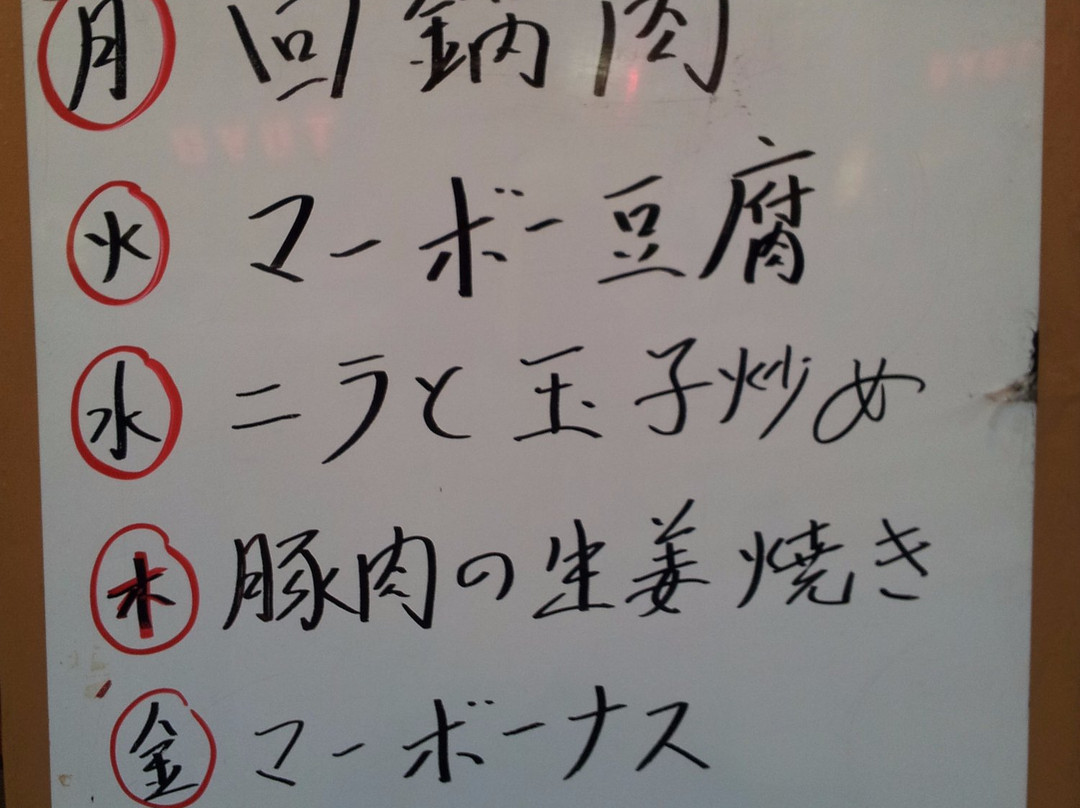 月 回鍋肉
火 マーボー豆腐
水 ニラと玉子炒め
木 豚肉の生姜焼き
金 マーボーナス